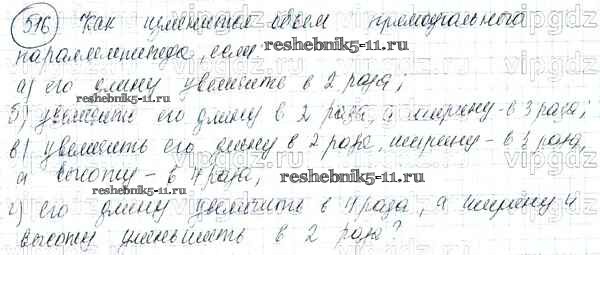 516 Как изменится объем прямоугольного
параллелепипеда, если
а) его длину увеличить в 2 раза;
б) увеличить его длину в 2 раза, а ширину - в 3 раза;
в) увеличить его длину в 2 раза, ширину - в 3 раза,
а высоту - в 4 раза;
г) его длину увеличить в 4 раза, а ширину и
высоту уменьшить в 2 раза?
reshebnik5-11.ru
reshebnik5-11.ru
reshebnik5-11.ru
reshebnik5-11.ru
vipgdz
vipgdz
vipgdz
vipgdz